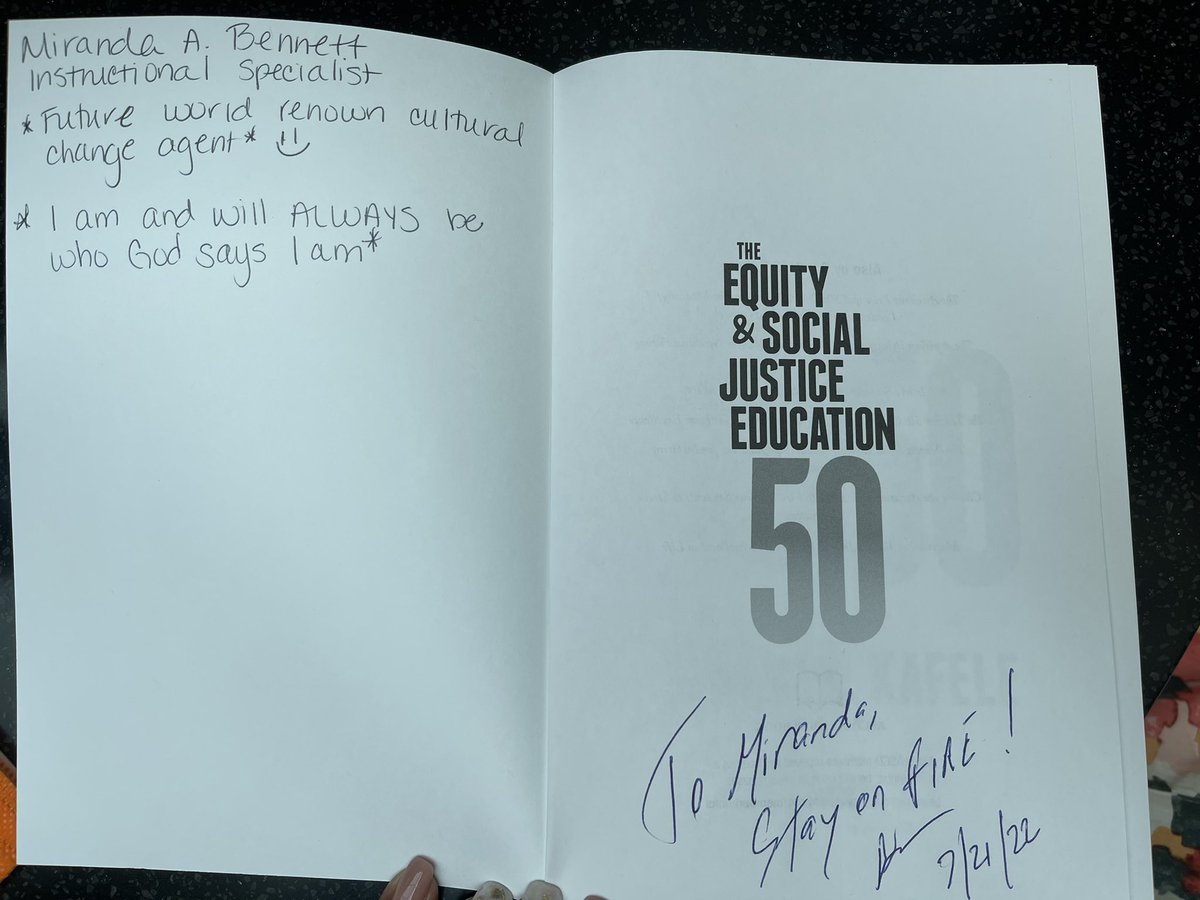 Miranda A. Bennett
Instructional Specialist
*Future world renown cultural
change agent*
* I am and will ALWAYS be
who God says I am*
THE
EQUITY
& SOCIAL
JUSTICE
EDUCATION
50
To Miranda,
Stay on FIRE!
7/21/22